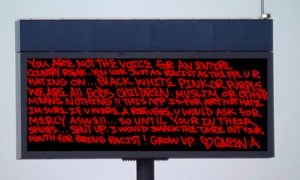 YOU ARE NOT THE VOICE FOR AN ENTIRE
COUNTRY FREAK. YOU LOOK JUST AS RACIST AS THE PPL U R
HATING ON... BLACK WHITE PINK OR PURPLE
WE ARE ALL GODS CHILDREN. MUSLIM OR OTHER
MEANS NOTHING!! THIS APP IS FOR ART NOT HATE
IM SURE IF U WERE A REFUGEE U WOULD ASK FOR
MERCY ASWELL... SO UNTIL YOUR IN THEIR
SHOES... SHUT UP I WOULD SMACK THE TASTE OUT YOUR
MOUTH FOR BEING RACIST! GROW UP. ♡ QUEEN A.